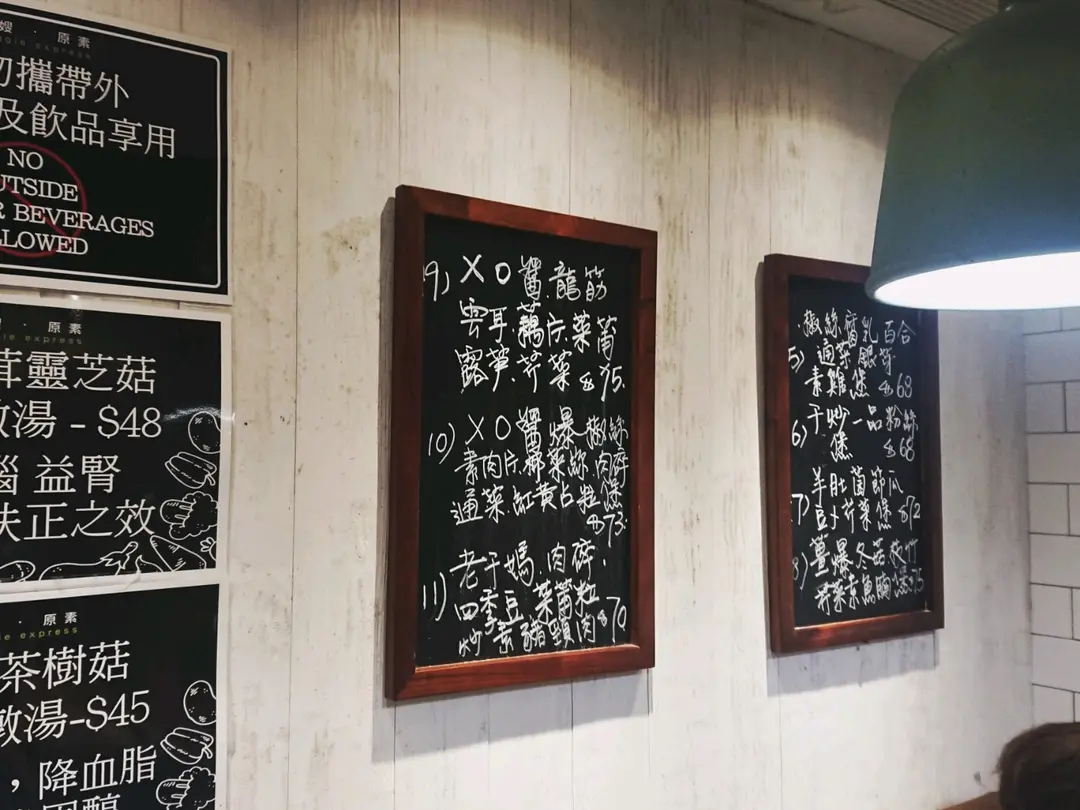 嫂 · 原素
勿攜帶外
及飲品享用
NO
UTSIDE
R BEVERAGES
LLOWED
· 原素
茸靈芝菇
燉湯 - $48
腦 益腎
扶正之效
· 原素
express
茶樹菇
燉湯-$45
，降血脂
9) XO醬.龍筋
雲耳.藕片.菜莆
露笋.芥菜 $75.
10) XO醬爆椒絲
素肉片.椰菜絲.肉碎
通菜.紅黃占粒煲
$73.
老干媽.肉碎.
11) 四季豆.菜莆粒
炒素豬頸肉 $70
椒絲腐乳百合
5) 通菜銀芽
素雞煲 $68
6) 干炒一品粉絲
煲 $68
7) 羊肚菌節瓜
芥菜煲 $72
8) 薑爆冬菇枝竹
芥菜素魚腩煲 $75